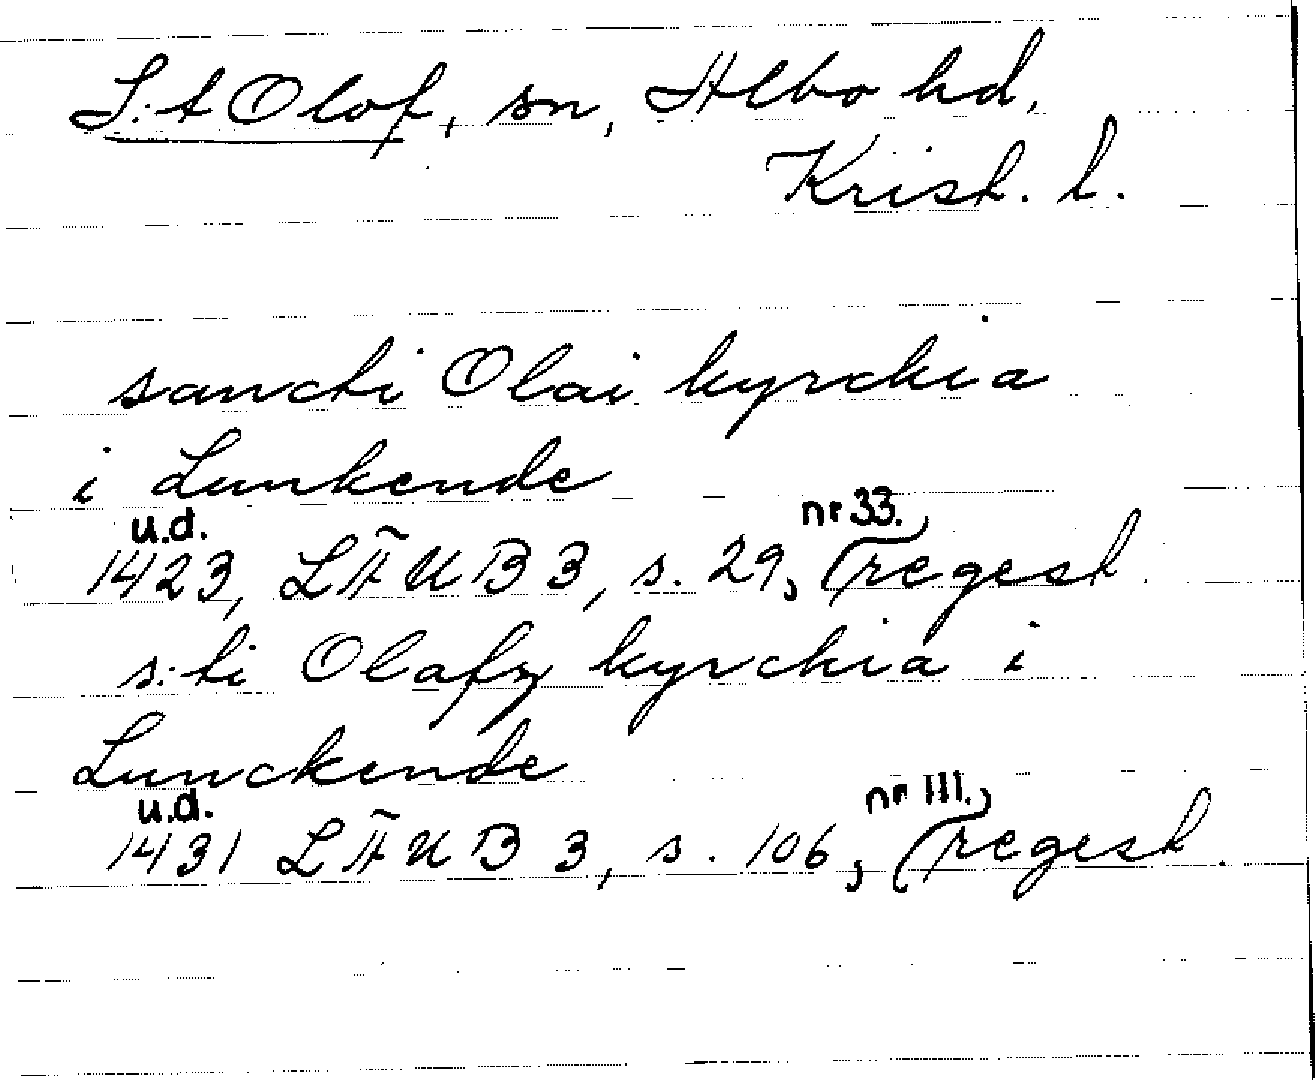 S:t Olof, sn, Albo hd,
Krist. l.
sancti Olai kyrckia
i Lunkende
u.d. nr 33.
1423, LÄUB 3, s. 29, (regest.
s:ti Olafz kyrchia i
Lunckende
u.d. nr 111.
1431 LÄUB 3, s. 106, (regest.